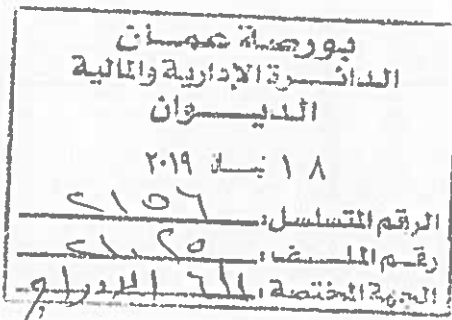 بورصة عمان
الدائرة الإدارية والمالية
الديوان
١٨ نيسان ٢٠١٩
الرقم المتسلسل: ٢١٥٦
رقم الملف:
الجهة المختصة: